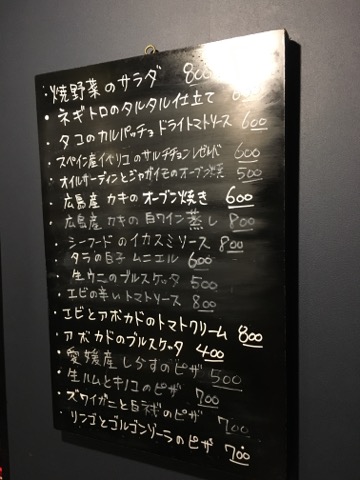 ・焼野菜のサラダ 800
・ネギトロのタルタル仕立て
・タコのカルパッチョドライトマトソース 600
・スペイン産イベリコのサルチチョンレゼルバ 600
・オイルサーディンとジャガイモのオーブン焼 500
・広島産 カキのオーブン焼き 600
・広島産 カキの白ワイン蒸し 800
・シーフードのイカスミソース 800
・タラの白子 ムニエル 600
・生ウニのブルスケッタ 500
・エビの辛いトマトソース 800
・エビとアボカドのトマトクリーム 800
・アボカドのブルスケッタ 400
・愛媛産しらすのピザ 500
・生ハムとキノコのピザ 700
・ズワイガニと白ネギのピザ 700
・リンゴとゴルゴンゾーラのピザ 700